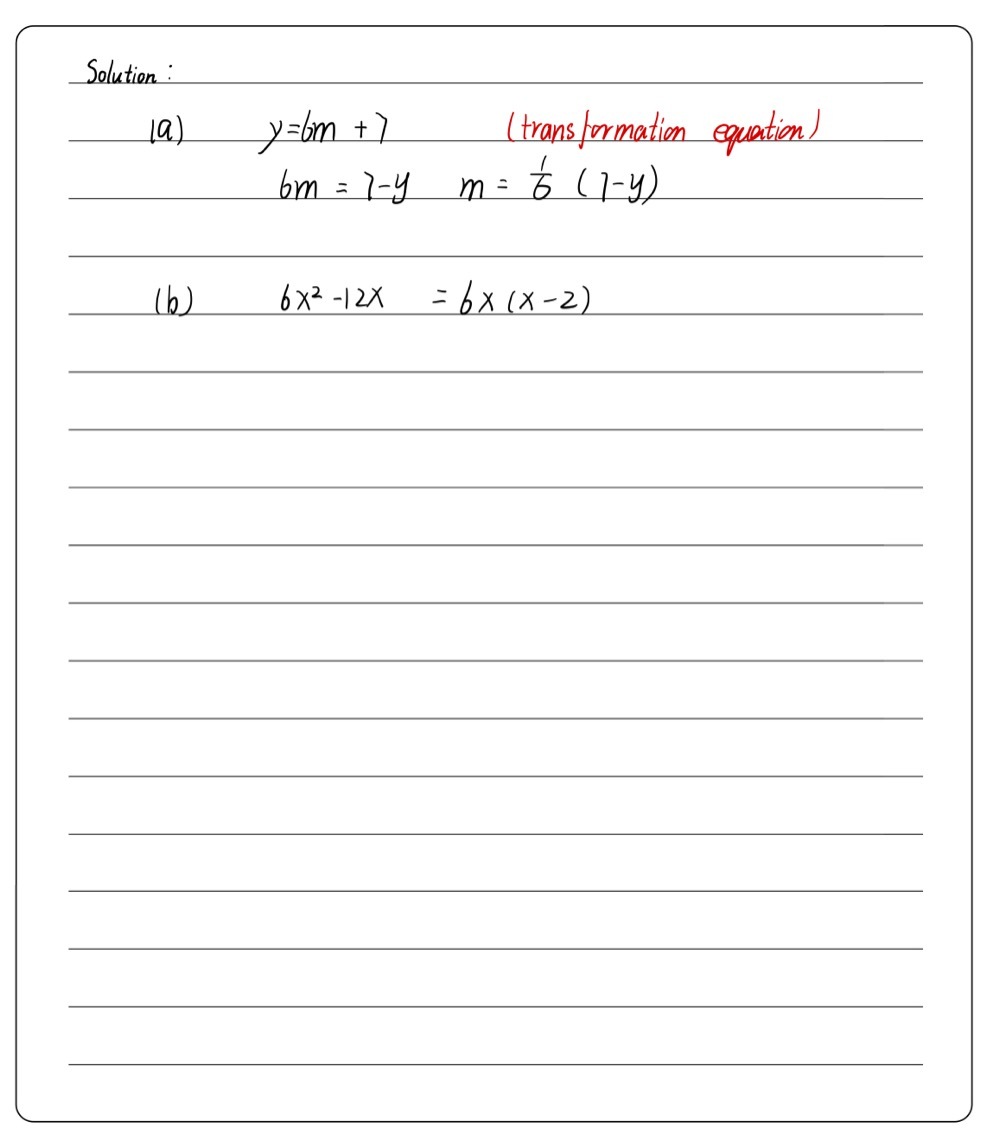 Solution :
(a) y=6m +7 (transformation equation)
6m = 7-y m = 1/6 (7-y)
(b) 6x² -12x = 6x (x-2)